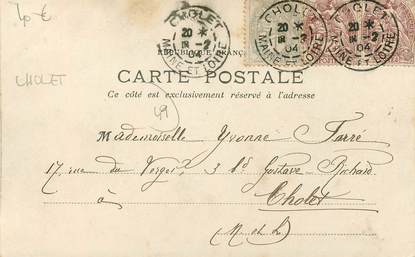 40 €
CHOLET
CHOLET
20 *
8 - 2
04
MAINE ET LOIRE
CHOLET
20 *
8 - 2
04
MAINE ET LOIRE
CHOLET
20 *
8 - 2
04
MAINE ET LOIRE
RÉPUBLIQUE FRANÇ
CARTE POSTALE
Ce côté est exclusivement réservé à l'adresse
49
Mademoiselle Yvonne Tarré
17, rue du Verger, 3 bd Gustave Richard
à Cholet
(M et L)